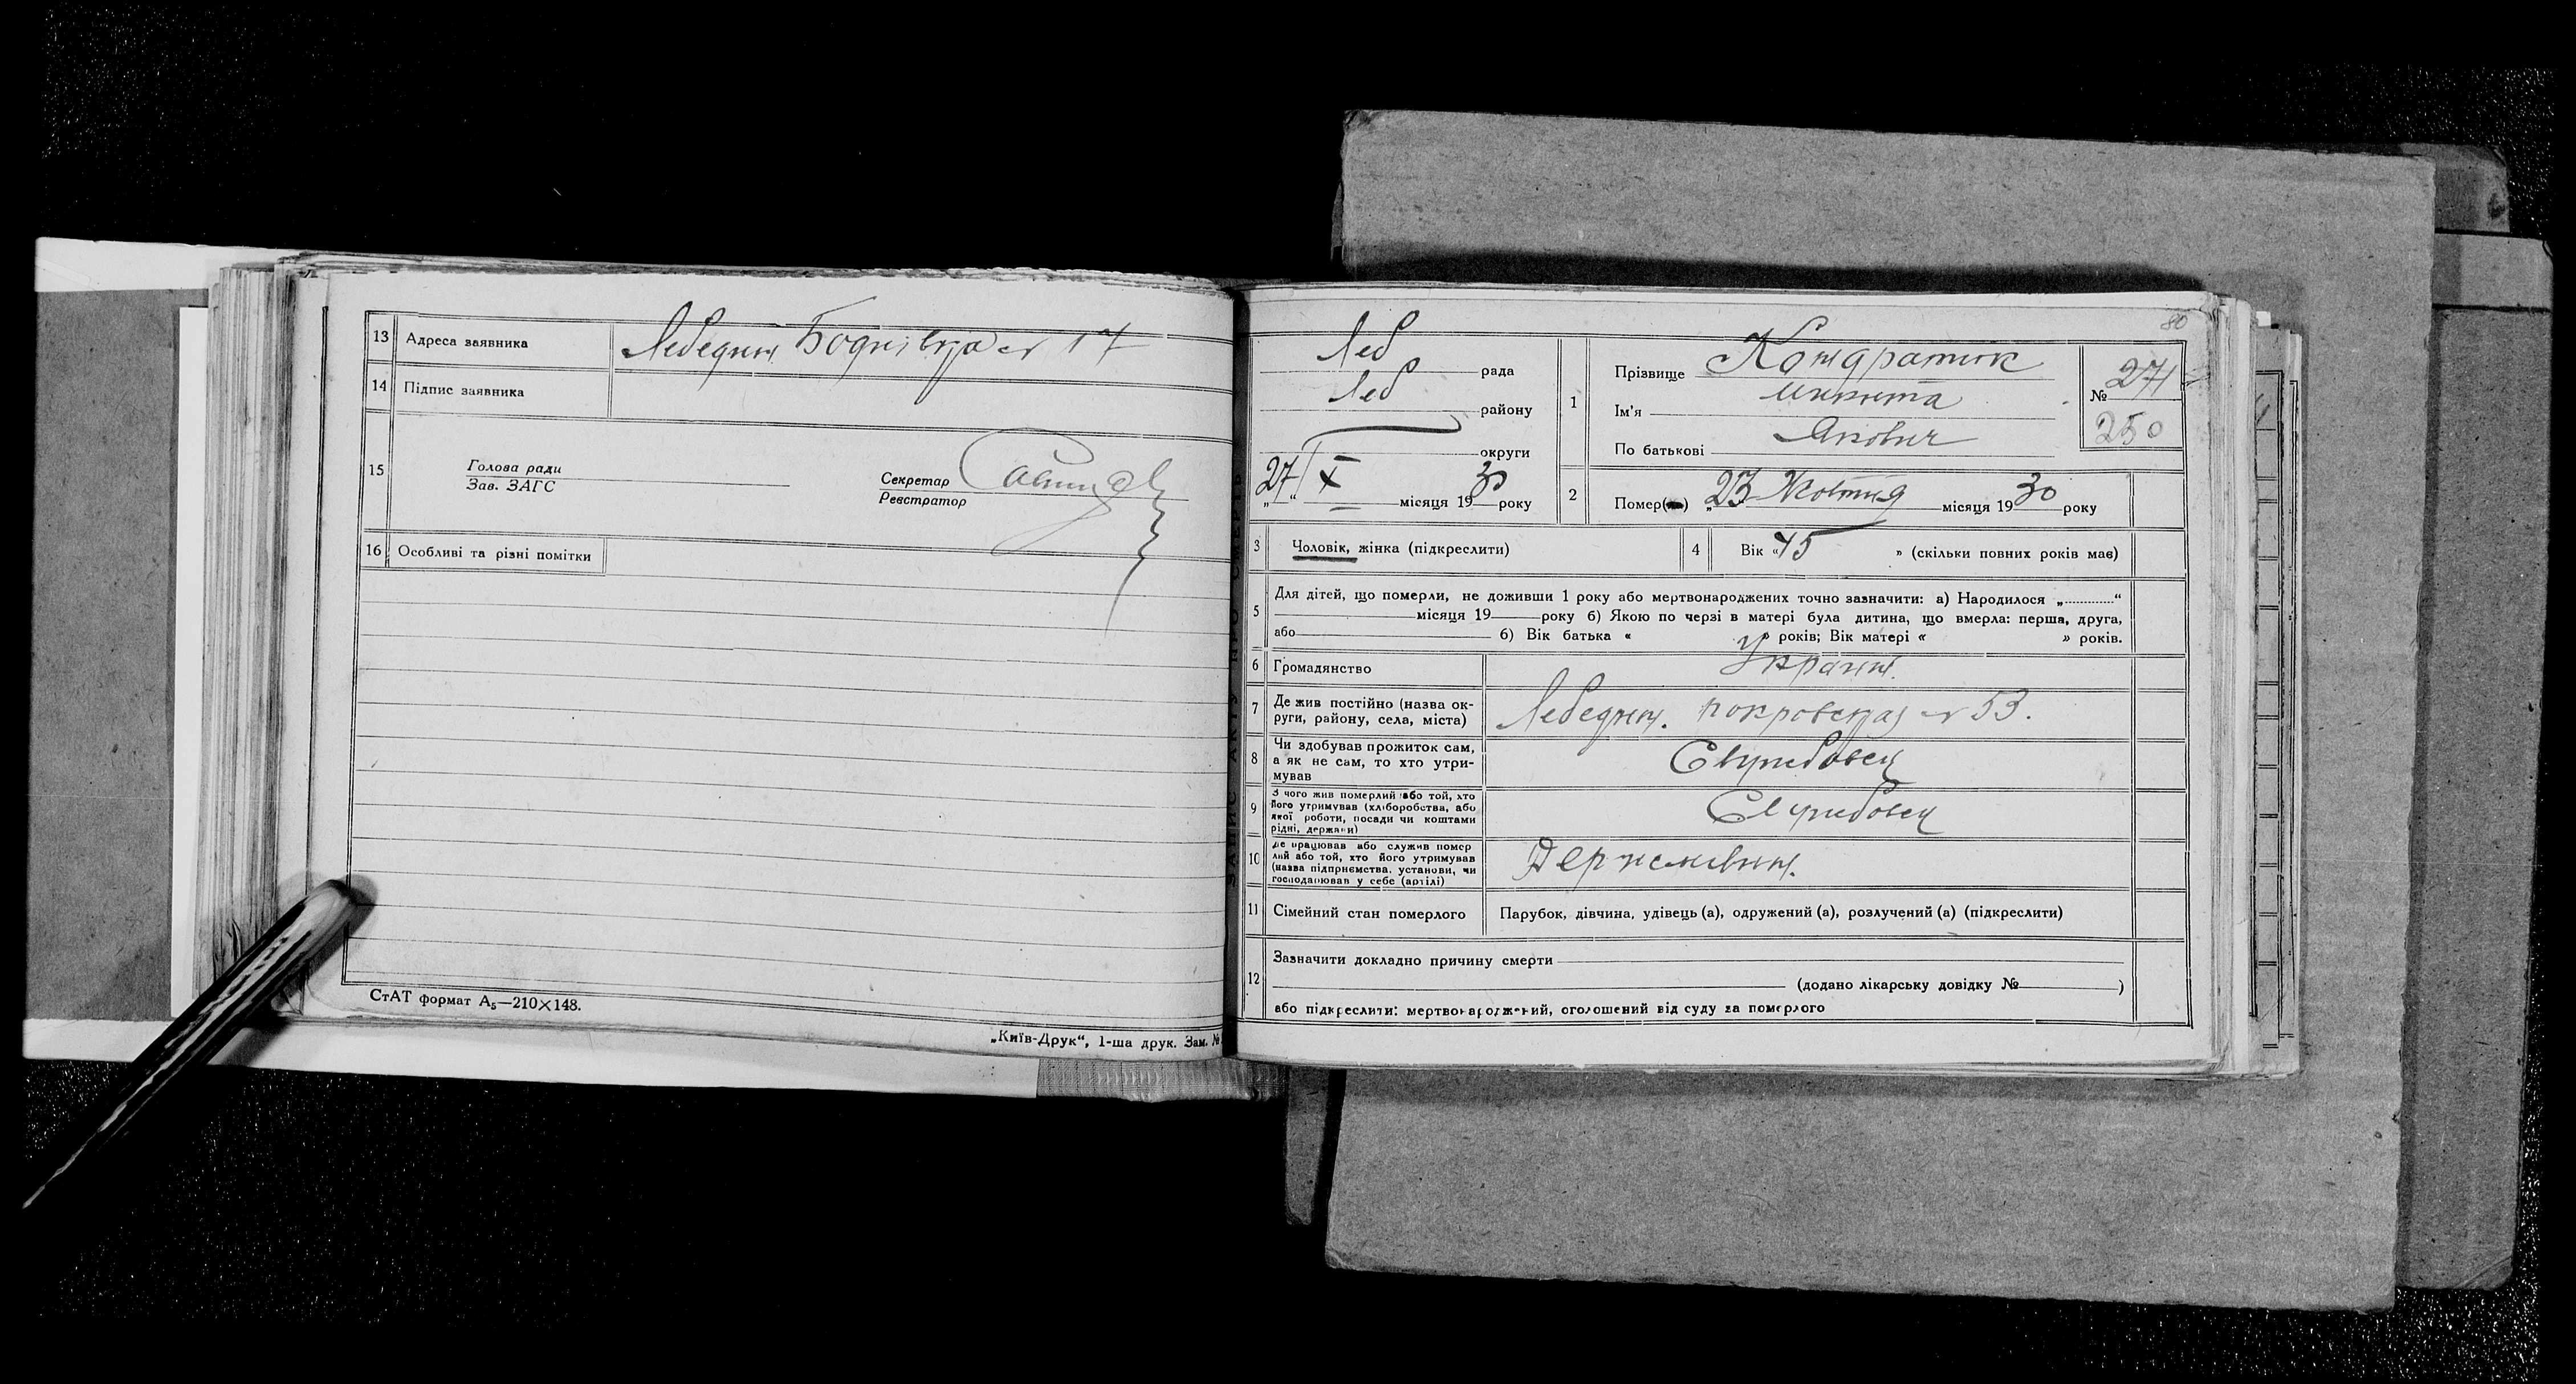 13 Адреса заявника Лебедин, Боднівка № 17
14 Підпис заявника
15 Голова ради
Зав. ЗАГС
Секретар
Реєстратор
16 Особливі та різні помітки
СтАТ формат А₅—210×148.
„Київ-Друк“, 1-ша друк. Зам. №
80
Леб рада
Леб району
округи
27/X місяця 1930 року
1 Прізвище Кондратюк
Ім'я Микита
По батькові Якович
№ 271
250
2 Помер „23 Жовтня місяця 1930 року
3 Чоловік, жінка (підкреслити)
4 Вік «75 » (скільки повних років має)
5 Для дітей, що померли, не доживши 1 року або мертвонароджених точно зазначити: а) Народилося „............“
місяця 19 року б) Якою по черзі в матері була дитина, що вмерла: перша, друга,
або б) Вік батька « » років; Вік матері « » років.
6 Громадянство Україн.
7 Де жив постійно (назва ок-
руги, району, села, міста) Лебедин. Покровская № 53.
8 Чи здобував прожиток сам,
а як не сам, то хто утри-
мував
9 З чого жив померлий або той, хто
його утримував (хліборобства, або
якої роботи, посади чи коштами
рідні, держави)
10 Де працював або служив помер
лий або той, хто його утримував
(назва підприємства, установи, чи
господарював у себе (артілі)
11 Сімейний стан померлого Парубок, дівчина, удівець (а), одружений (а), розлучений (а) (підкреслити)
12 Зазначити докладно причину смерти
(додано лікарську довідку № )
або підкреслити: мертвонароджений, оголошений від суду за померлого